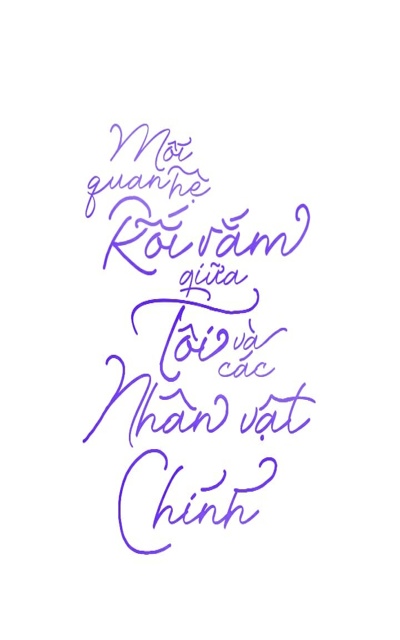 Mối
quan hệ
Rối rắm
giữa
Tôi và
các
Nhân vật
Chính